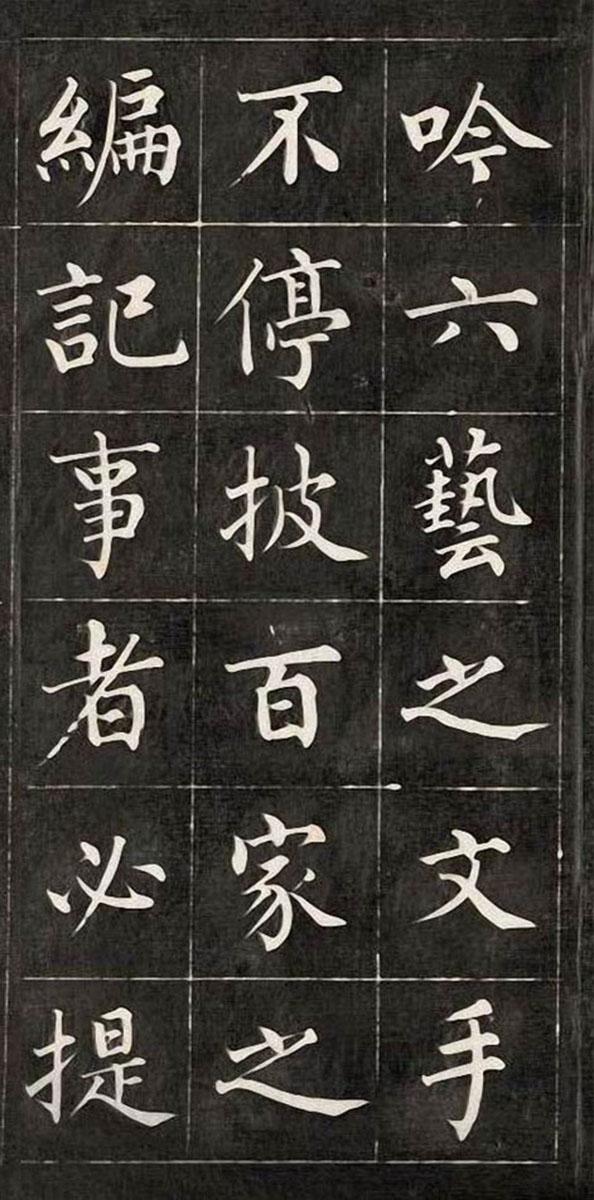 吟六藝之文手
不停披百家之
編記事者必提